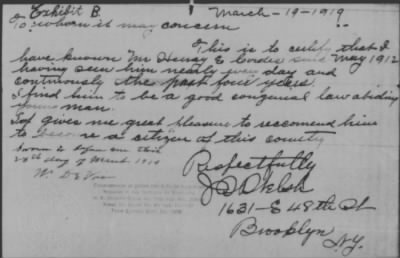 Exhibit B.
March-19-1919
To whom it may concern
This is to certify that I
have known Mr Henry E Cordes since May 1912
having seen him nearly every day and
continuously the past four years.
I find him to be a good congenial law abiding
young man.
It gives me great pleasure to reccomend him
to become a citizen of this country
Sworn to before me this
28th day of March 1919
Wm
Respectfully
1631-E 48th St
Brooklyn
N.Y.